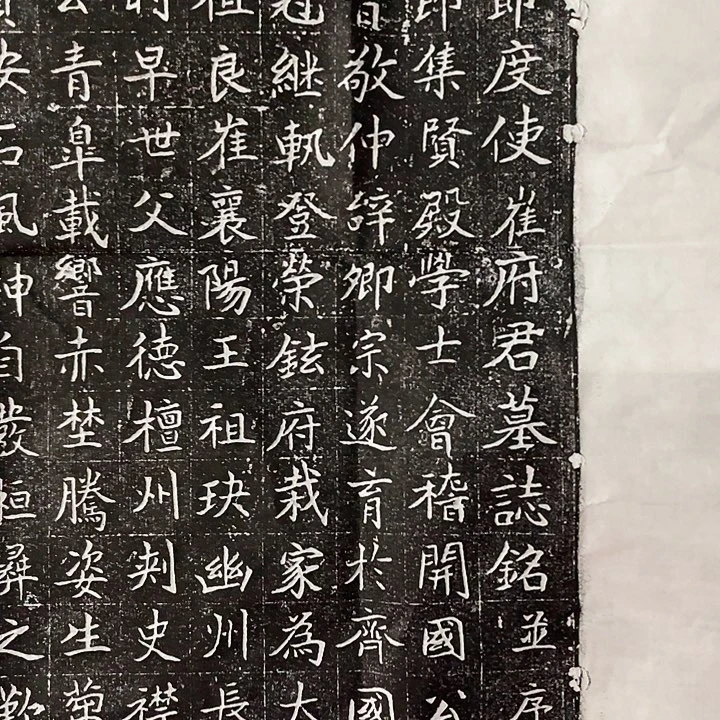 節度使崔府君墓誌銘並序
集賢殿學士會稽開國公
敬仲辭卿宗遂育於齊國
冠継軌登榮鉉府栽家為大
祖良崔襄陽王祖玦幽州長
時早世父應徳檀州刾史襟
青皐載響赤埜騰姿生
安石風神自發桓彛之歎